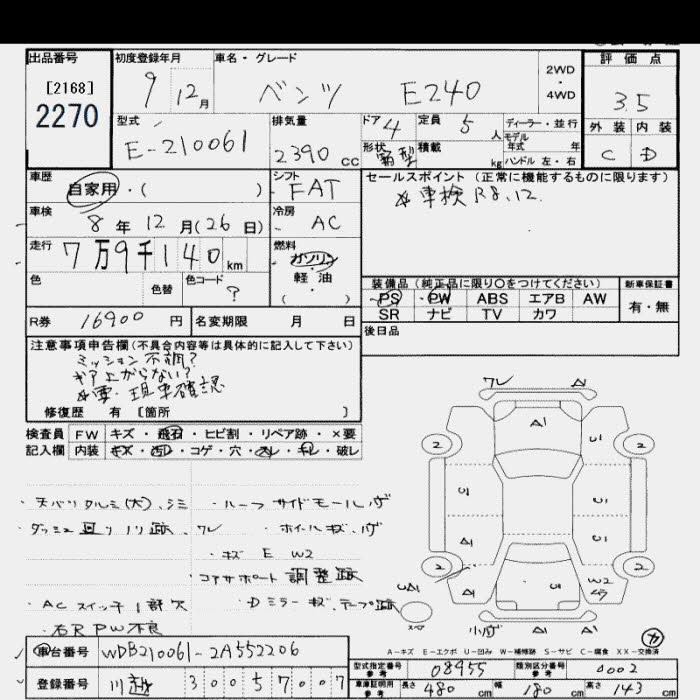 出品番号 初度登録年月 車名・グレード 2WD・4WD 評価点
[2168] 9 12月 ベンツ E240 3.5
2270
型式 排気量 ドア 4 定員 5人 ディーラー・並行 外装 内装
E-210061 2390cc 形状 箱型 積載 kg モデル年式 年 C D
ハンドル 左・右
車歴 シフト セールスポイント (正常に機能するものに限ります)
自家用・( ) FAT ※車検R8.12.
車検 冷房
8年12月(26日) AC
走行 燃料
7万9千140km ガソリン・軽油
( )
色 色替 色コード ? 装備品(純正品に限り○をつけてください) 新車保証書
PS PW ABS エアB AW 有・無
R券 16900円 名変期限 月 日 SR ナビ TV カワ
注意事項申告欄(不具合内容等は具体的に記入して下さい) 後日品
ミッション不調?
ギア上がらない?
※要・現車確認
修復歴 有 [箇所 ]
検査員 FW キズ・飛石・ヒビ割・リペア跡・×要
記入欄 内装 キズ・凹・コゲ・穴・ヨレ・キレ・破レ
ワレ A1
A1
2 U1 2
U1 U1
A1 U1
2 U1 W2 2
A1 A1
・天バリタルミ(大)、シミ ・ルーフサイドモールハゲ
・ダッシュ廻りノリ跡、ワレ ・ホイールキズ、ハゲ
・キズ E W2
・コアサポート調整跡
・ACスイッチ1部欠 ・Dミラーキズ、テープ跡
・右R PW不良
A-キズ E-エクボ U-凹み W-補修跡 S-サビ C-腐食 XX-交換済
車台番号 WDB210061-2A552206
型式指定番号 参考 08955 類別区分番号 参考 0002
登録番号 川越 300 5 7007
車庫証明用 参考 長さ 480cm 幅 180cm 高さ 143cm